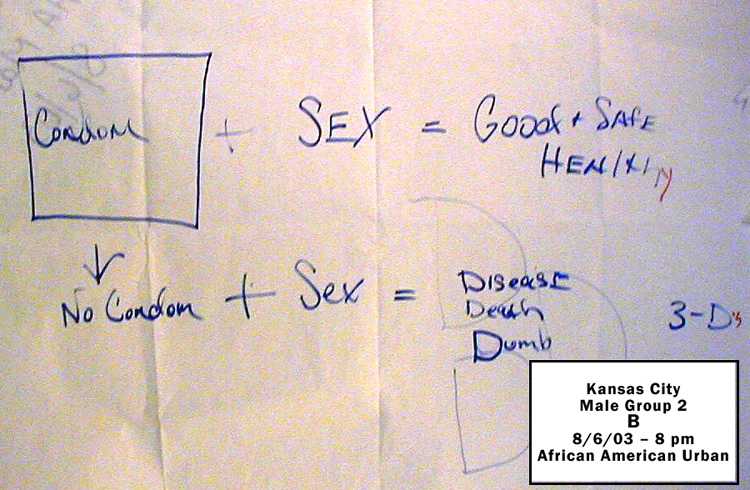 CONDOM + SEX = GOOD + SAFE
HEN/XI
No Condom + Sex = Disease
Death
Dumb
3-D's
Kansas City
Male Group 2
B
8/6/03 – 8 pm
African American Urban